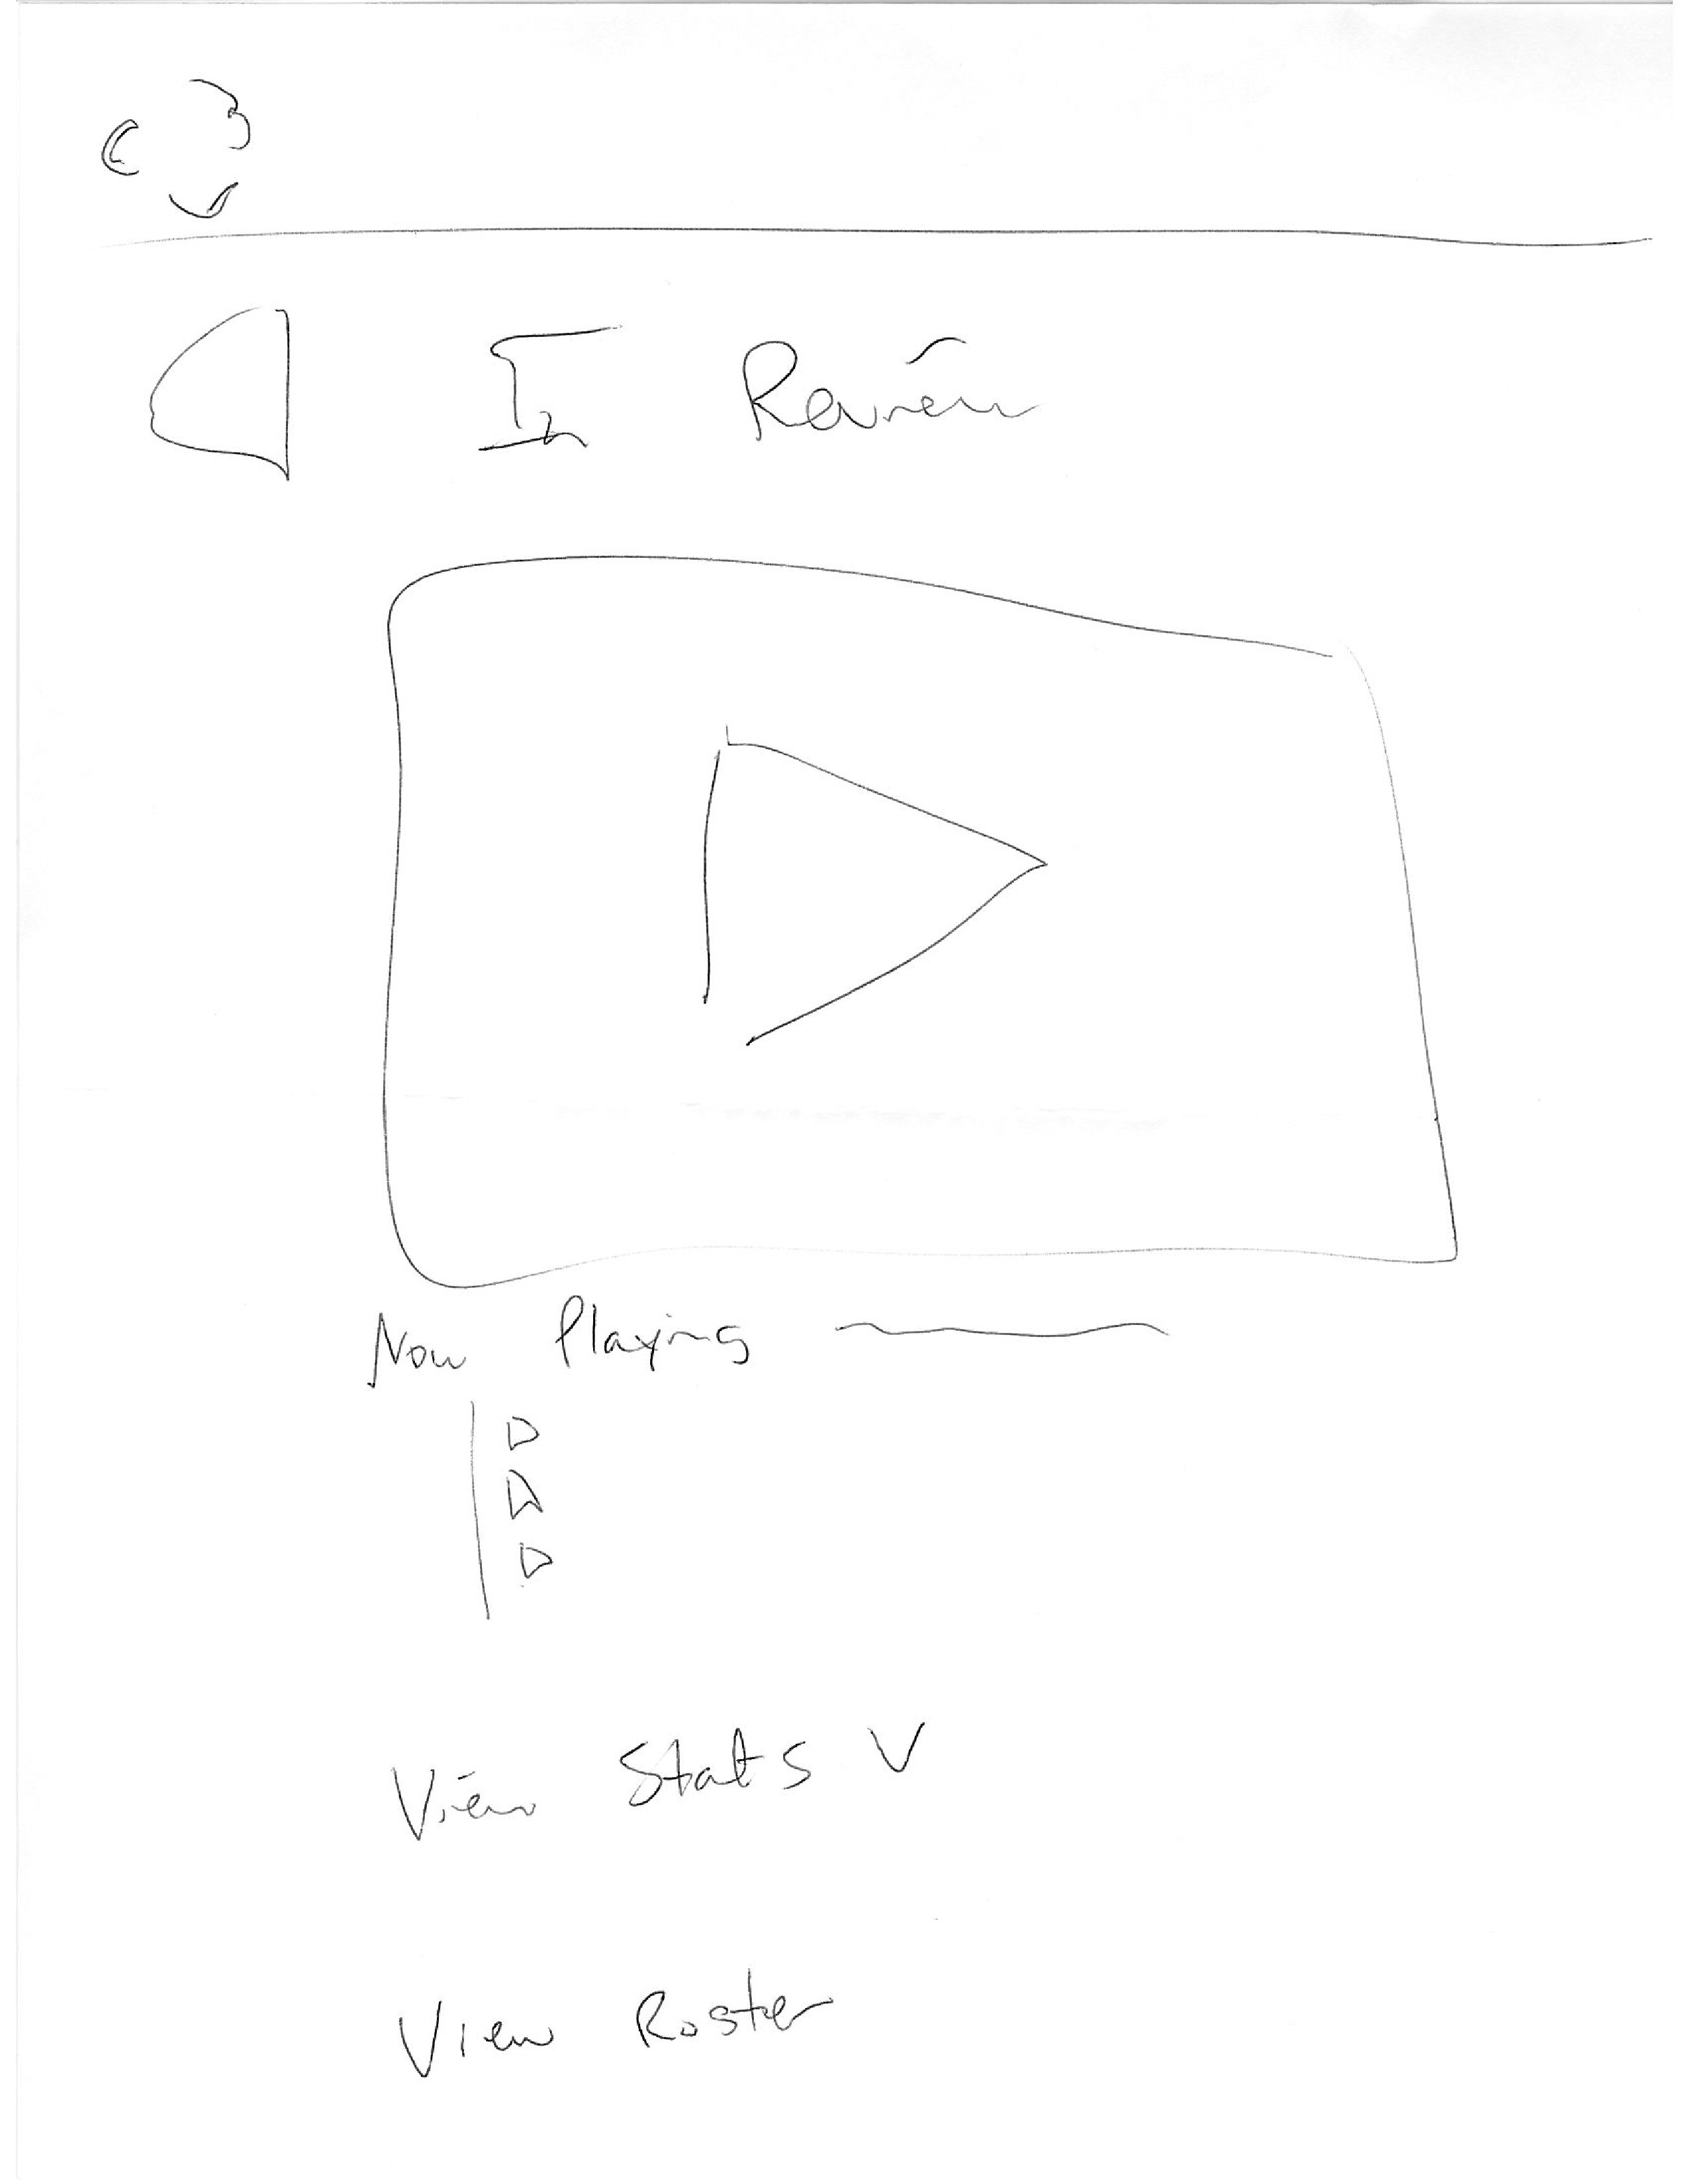 In Review
Now Playing
View Stats V
View Roster